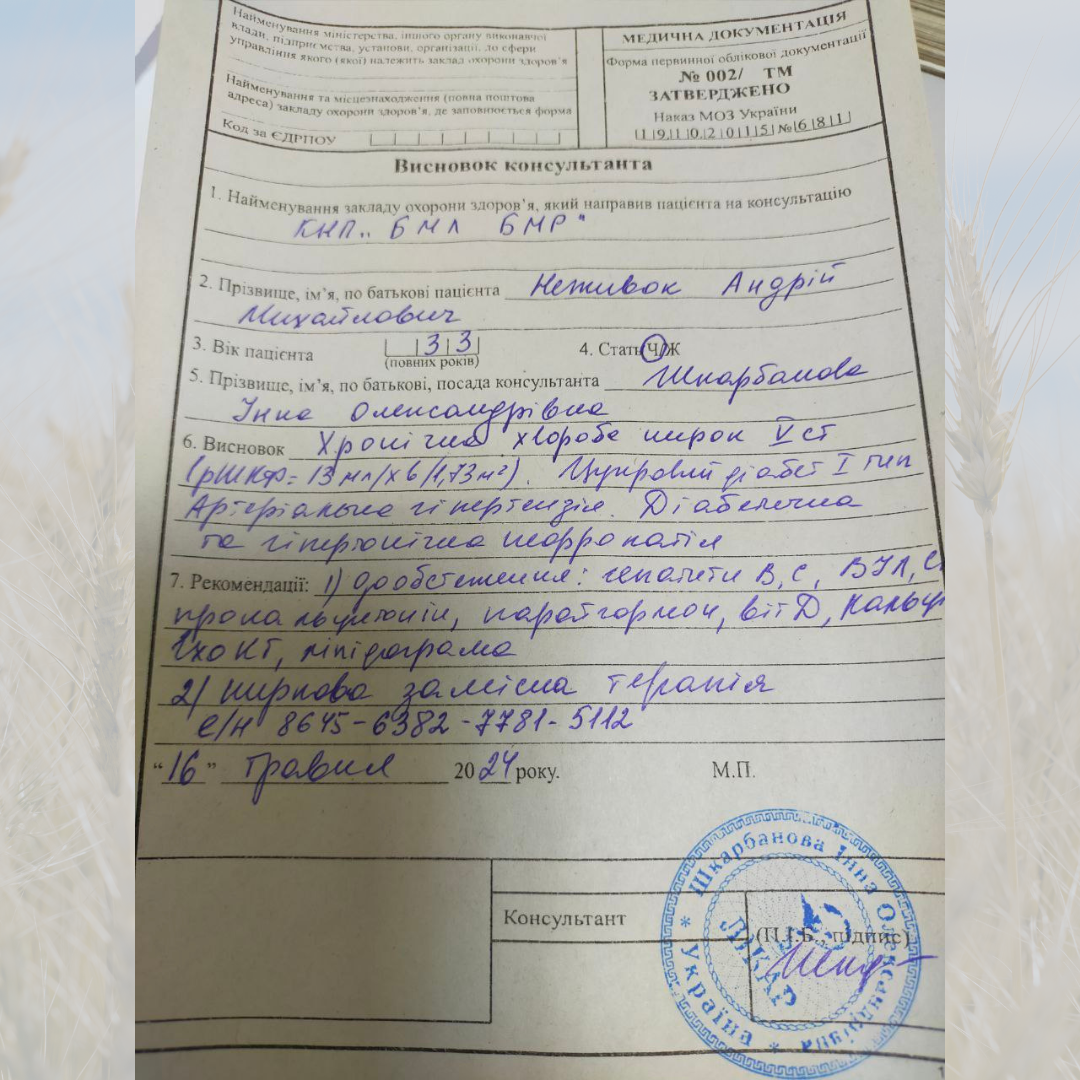 Найменування міністерства, іншого органу виконавчої
влади, підприємства, установи, організації, до сфери
управління якого (якої) належить заклад охорони здоров'я
Найменування та місцезнаходження (повна поштова
адреса) закладу охорони здоров'я, де заповнюється форма
Код за ЄДРПОУ
МЕДИЧНА ДОКУМЕНТАЦІЯ
Форма первинної облікової документації
№ 002/ ТМ
ЗАТВЕРДЖЕНО
Наказ МОЗ України
1 9 1 0 2 0 1 5 № 6 8 1
Висновок консультанта
1. Найменування закладу охорони здоров'я, який направив пацієнта на консультацію
КНП „БМЛ БМР"
2. Прізвище, ім'я, по батькові пацієнта Неживок Андрій
Михайлович
3. Вік пацієнта 33 4. Стать Ч/Ж
(повних років)
5. Прізвище, ім'я, по батькові, посада консультанта Шкарбанова
Інна Олександрівна
6. Висновок Хронічна хвороба нирок V ст
(рШКФ = 13 мл/хв/1,73м²). Цукровий діабет I тип
Артеріальна гіпертензія. Діабетична
та гіпертонічна нефропатія
7. Рекомендації: 1) дообстеження: гепатити В, С, ВІЛ,
прокальцитонін, паратгормон, віт Д,
ЕхоКГ, ліпідограма
2) ниркова замісна терапія
е/н 8645-6382-7781-5112
"16" травня 2024 року. М.П.
Консультант
(П.І.Б., підпис)
Шкарбанова Інна Олександрівна
* Україна *
ЛІКАР